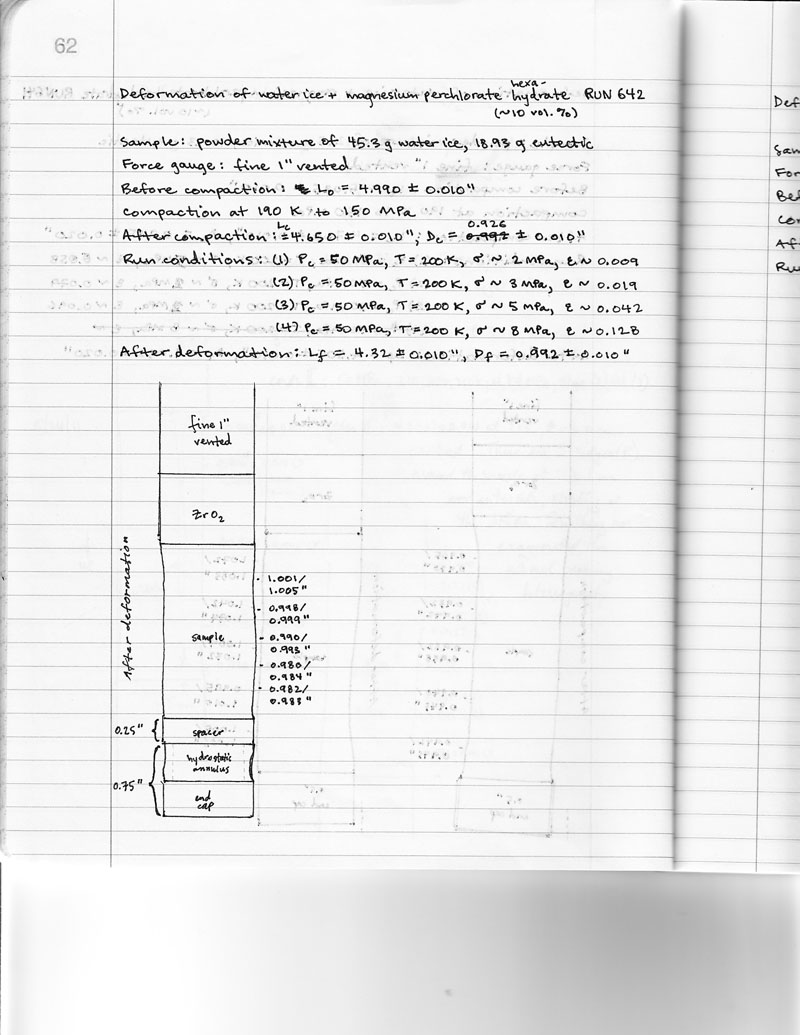 62
hexa-
Deformation of water ice + magnesium perchlorate hydrate RUN 642
(~10 vol. %)
Sample: powder mixture of 45.3 g water ice, 18.93 g eutectic
Force gauge: fine 1" vented
Before compaction: L₀ = 4.990 ± 0.010"
compaction at 190 K to 150 MPa
Lc 0.926
After compaction: = 4.650 ± 0.010", Dc = 0.992 ± 0.010"
Run conditions: (1) Pc = 50 MPa, T = 200 K, σ ~ 2 MPa, ε ~ 0.009
(2) Pc = 50 MPa, T = 200 K, σ ~ 3 MPa, ε ~ 0.019
(3) Pc = 50 MPa, T = 200 K, σ ~ 5 MPa, ε ~ 0.042
(4) Pc = 50 MPa, T = 200 K, σ ~ 8 MPa, ε ~ 0.128
After deformation: Lf = 4.32 ± 0.010", Df = 0.992 ± 0.010"
fine 1"
vented
ZrO₂
After deformation
1.001/
1.005"
0.998/
0.999"
sample
0.990/
0.993"
0.980/
0.984"
0.982/
0.983"
0.25"
spacer
hydrostatic
annulus
0.75"
end
cap
Def
Sam
For
Bef
Co
Af
Ru